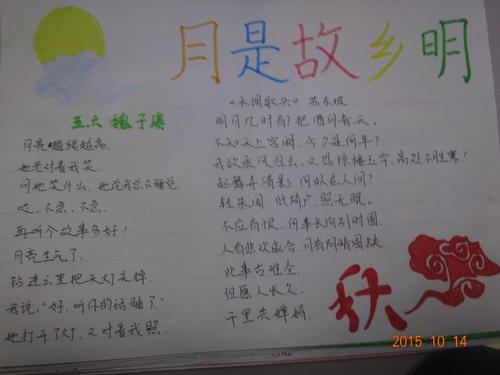 月是故乡明
五.六 魏子赓
月亮越爬越高,
她老对着我笑.
问她笑什么,她说我怎不睡觉
哎,不急,不急,
再听个故事多好!
月亮生气了.
钻进云里把天灯关掉.
我说:"好,听你的话睡了"
她打开了灯,又对着我照.
《水调歌头》 苏东坡
明月几时有?把酒问青天.
不知天上宫阙,今夕是何年?
我欲乘风归去,又恐琼楼玉宇,高处不胜寒!
起舞弄清影,何似在人间?
转朱阁,低绮户,照无眠.
不应有恨,何事长向别时圆
人有悲欢离合,月有阴晴圆缺
此事古难全.
但愿人长久,
千里共婵娟.
秋
2015 10 14